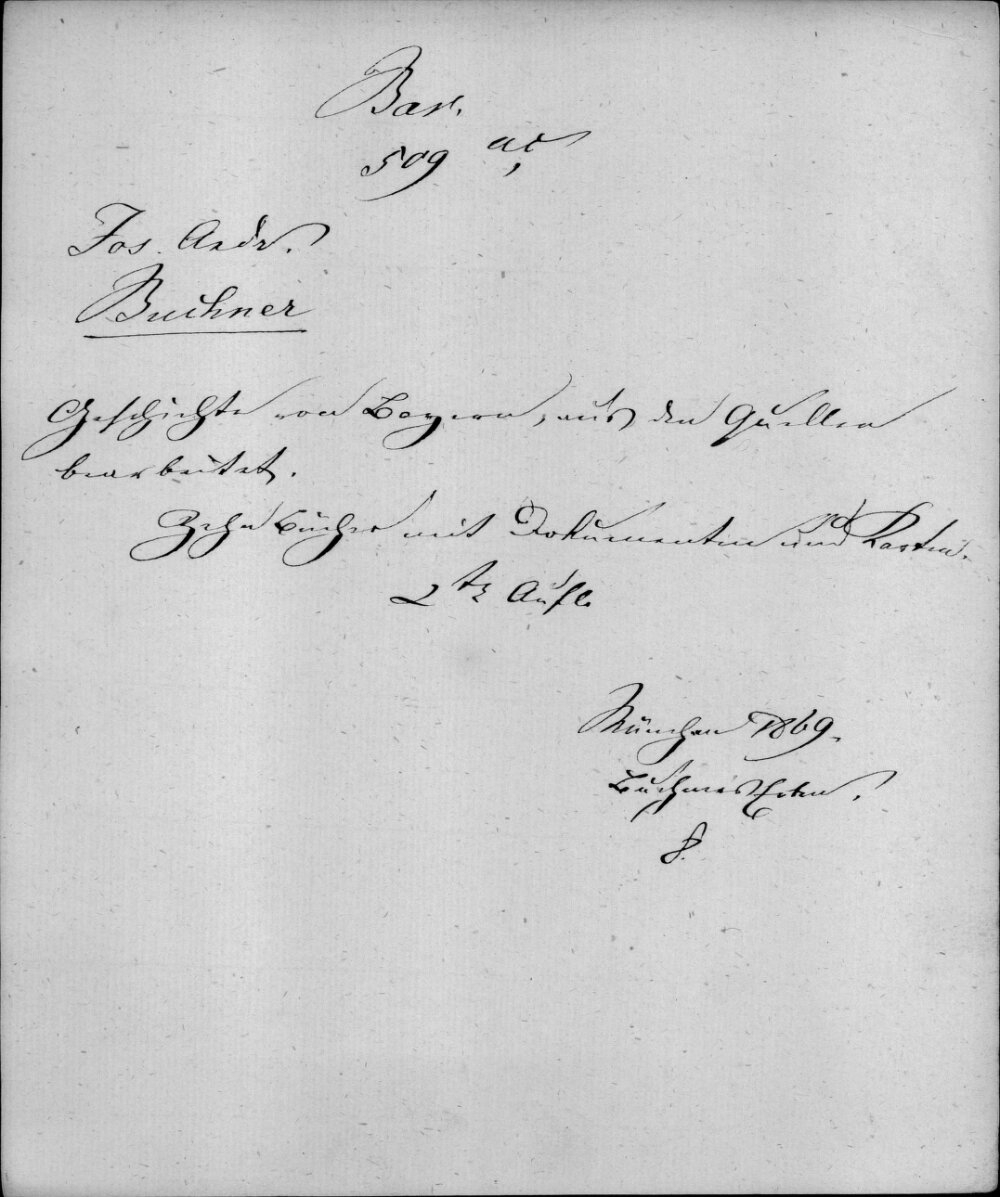 Bav.
509 ad,
Jos. Andr.
Buchner
Geschichte von Bayern, aus den Quellen
bearbeitet.
Zehn Bücher mit Dokumenten und Karten.
2te Aufl.
München 1869.
Buchners Erben.
8.